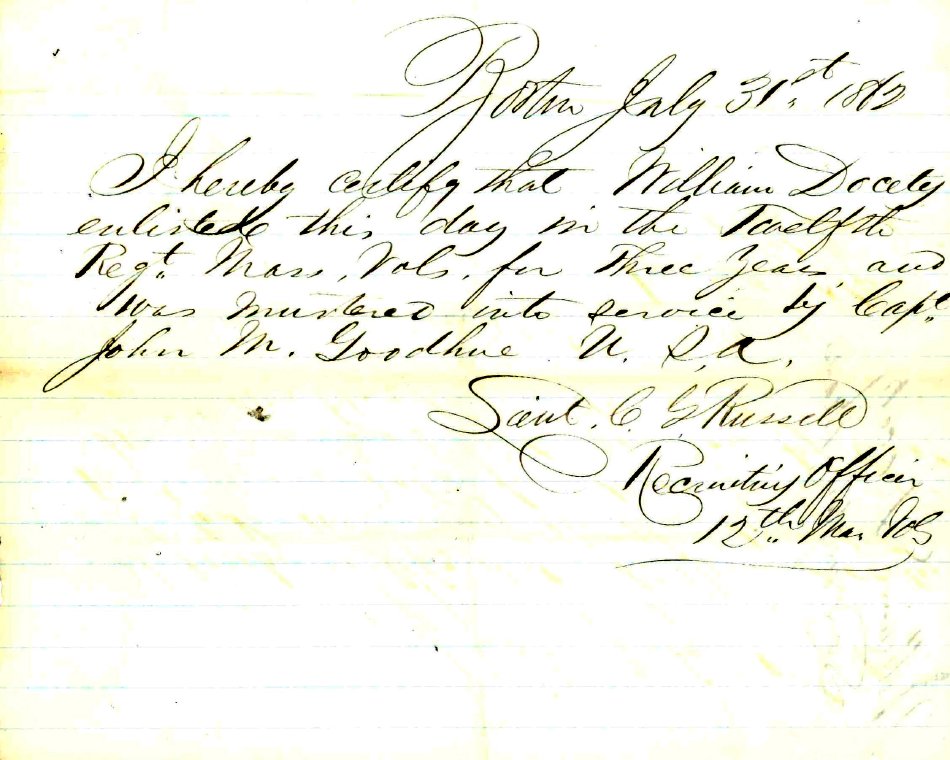 Boston July 31st 1862
I hereby certify that William Docety
enlisted this day in the Twelfth
Regt. Mass. Vols. for Three Years and
was mustered into service by Capt.
John M. Goodhue U. S. A.
Lieut. C. G Russell
Recruiting Officer
12th Mas Vols